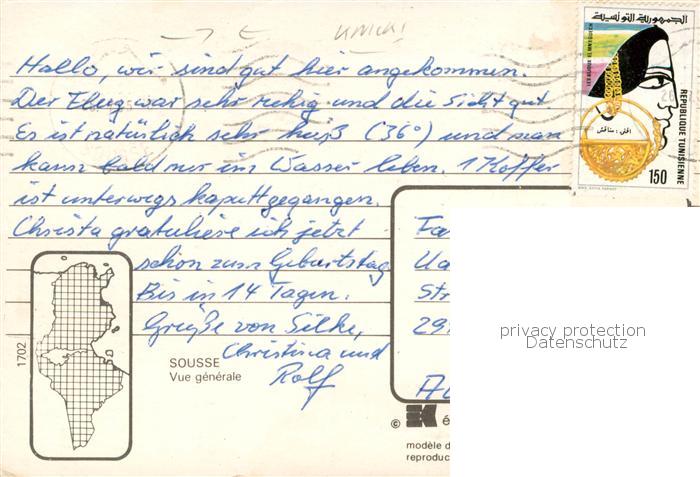 Hallo, wir sind gut hier angekommen.
Der Flug war sehr ruhig und die Sicht gut.
Es ist natürlich sehr heiß (36°) und man
kann bald nur im Wasser leben. 1 Koffer
ist unterwegs kaputtgegangen.
Christa gratuliere ich jetzt
schon zum Geburtstag
Bis in 14 Tagen.
Grüße von Silke,
Christina und
Rolf
الجمهورية التونسية
REPUBLIQUE TUNISIENNE
150
1702
SOUSSE
Vue générale
Fa
Ua
Str
29
Au
©
é
modèle d
reproduc
privacy protection
Datenschutz